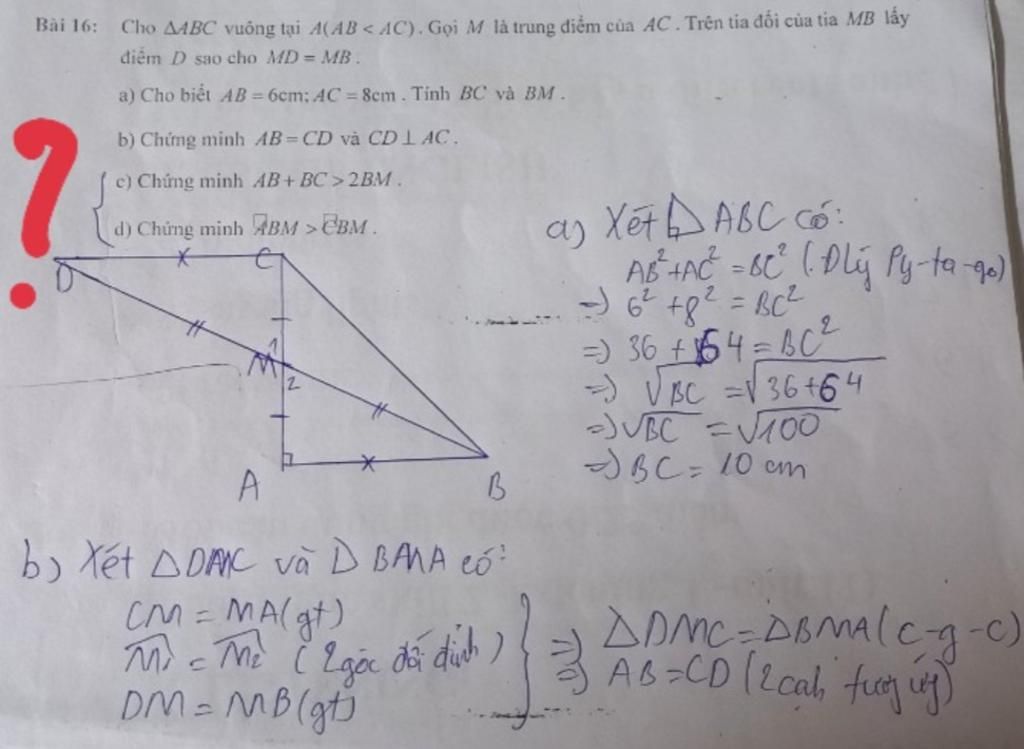 Bài 16: Cho ΔABC vuông tại A(AB < AC). Gọi M là trung điểm của AC. Trên tia đối của tia MB lấy
điểm D sao cho MD = MB.
a) Cho biết AB = 6cm; AC = 8cm. Tính BC và BM.
b) Chứng minh AB = CD và CD ⊥ AC.
c) Chứng minh AB + BC > 2BM.
d) Chứng minh ABM > CBM.
?
D
C
M
1
2
A
B
a) Xét Δ ABC có:
AB² + AC² = BC² (Đlý Py-ta-go)
=> 6² + 8² = BC²
=> 36 + 64 = BC²
=> √BC = √36+64
=> √BC = √100
=> BC = 10 cm
b) Xét Δ DMC và Δ BMA có:
CM = MA (gt)
M₁ = M₂ (2 góc đối đỉnh)
DM = MB (gt)
=> ΔDMC = ΔBMA (c-g-c)
=> AB = CD (2 cạh tương ứg)